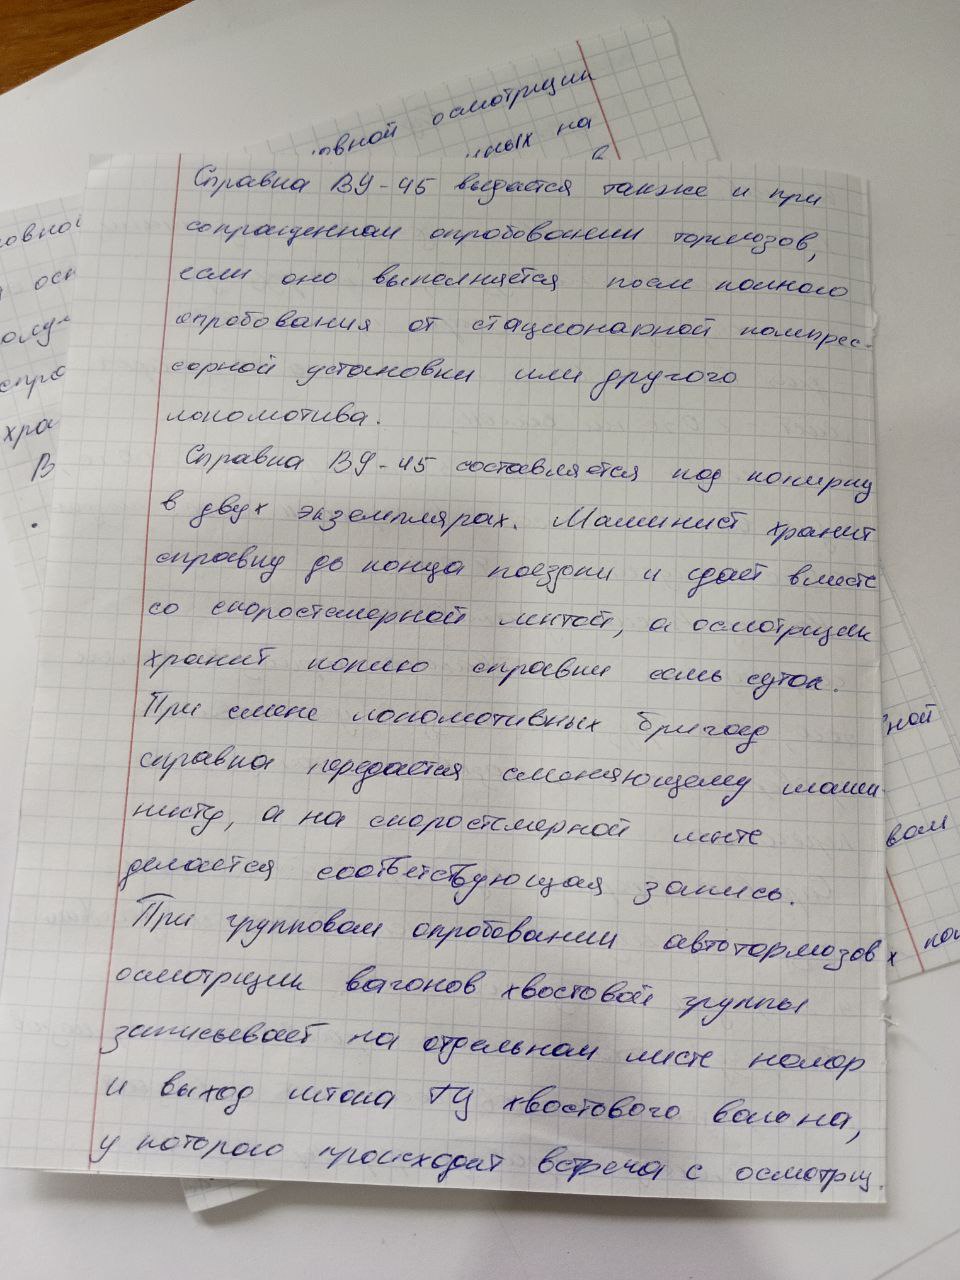 овной осмотрщик
ных на
в
Справка ВУ-45 выдается также и при
сокращенном опробовании тормозов,
если оно выполняется после полного
опробования от стационарной компрес-
сорной установки или другого
локомотива.
Справка ВУ-45 составляется под копирку
в двух экземплярах. Машинист хранит
справку до конца поездки и сдает вместе
со скоростемерной лентой, а осмотрщик
хранит копию справки семь суток.
При смене локомотивных бригад
справка передается сменяющему маши-
нисту, а на скоростемерной ленте
делается соответствующая запись.
При групповом опробовании автотормозов
осмотрщик вагонов хвостовой группы
записывает на отдельном листе номер
и выход штока ТЦ хвостового вагона,
у которого происходит встреча с осмотрщ.
овной
осн
олу-
спра
хра
В
ной
вом
х